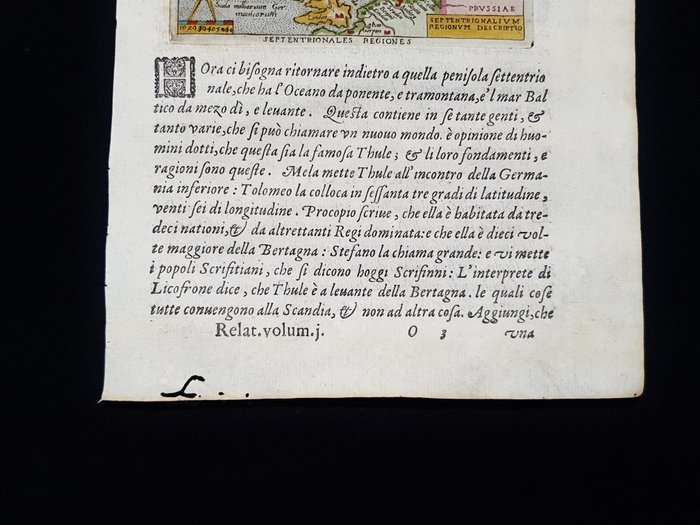 PRVSSIAE
SEPTENTRIONALIVM
REGIONVM DESCRIPTIO
SEPTENTRIONALES REGIONES
HOra ci bisogna ritornare indietro a quella penisola settentrio
nale, che ha l'Oceano da ponente, e tramontana, e'l mar Bal
tico da mezo dì, e leuante. Questa contiene in se tante genti, &
tanto varie, che si può chiamare vn nuouo mondo. è opinione di huo-
mini dotti, che questa sia la famosa Thule; & li loro fondamenti, e
ragioni sono queste. Mela mette Thule all'incontro della Germa-
nia inferiore: Tolomeo la colloca in sessanta tre gradi di latitudine,
venti sei di longitudine. Procopio scriue, che ella è habitata da tre-
deci nationi, & da altrettanti Regi dominata: e che ella è dieci vol-
te maggiore della Bertagna: Stefano la chiama grande: e vi mette
i popoli Scrifitiani, che si dicono hoggi Scrifinni: L'interprete di
Licofrone dice, che Thule è a leuante della Bertagna. le quali cose
tutte conuengono alla Scandia, & non ad altra cosa. Aggiungi, che
Relat. volum. j. O 3 vna